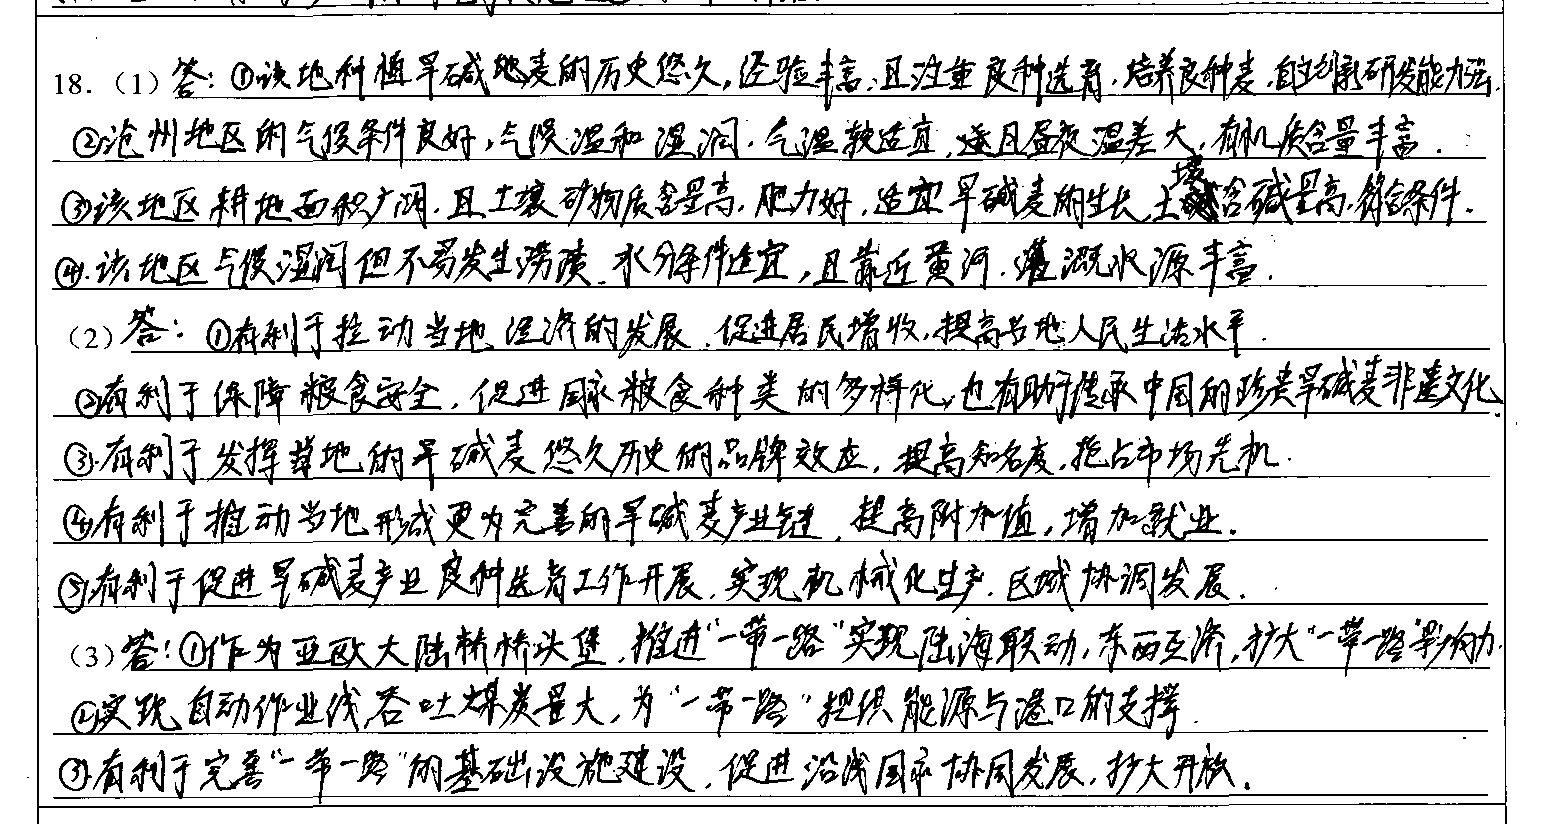 18.（1）答：①该地种植旱碱地麦的历史悠久，经验丰富，且注重良种选育，培养良种麦，自主创新研发能力强.
②沧州地区的气候条件良好，气候温和湿润，气温较适宜，且昼夜温差大，有机质含量丰富.
③该地区耕地面积广阔，且土壤矿物质含量高，肥力好，适宜旱碱麦的生长，土壤含碱量高，符合条件.
④.该地区气候湿润但不易发生涝渍，水分条件适宜，且靠近黄河，灌溉水源丰富.
（2）答：①有利于拉动当地经济的发展，促进居民增收，提高当地人民生活水平.
②有利于保障粮食安全，促进国家粮食种类的多样化，也有助于传承中国的珍贵旱碱麦非遗文化.
③.有利于发挥当地的旱碱麦悠久历史的品牌效应，提高知名度，抢占市场先机.
④有利于推动当地形成更为完善的旱碱麦产业链，提高附加值，增加就业.
⑤有利于促进旱碱麦产业良种选育工作开展，实现机械化生产，区域协调发展.
（3）答：①作为亚欧大陆桥桥头堡，推进“一带一路”实现陆海联动，东西互济，扩大“一带一路”影响力.
②实现自动作业线，吞吐煤炭量大，为“一带一路”提供能源与港口的支撑.
③有利于完善“一带一路”的基础设施建设，促进沿线国家协同发展，扩大开放.